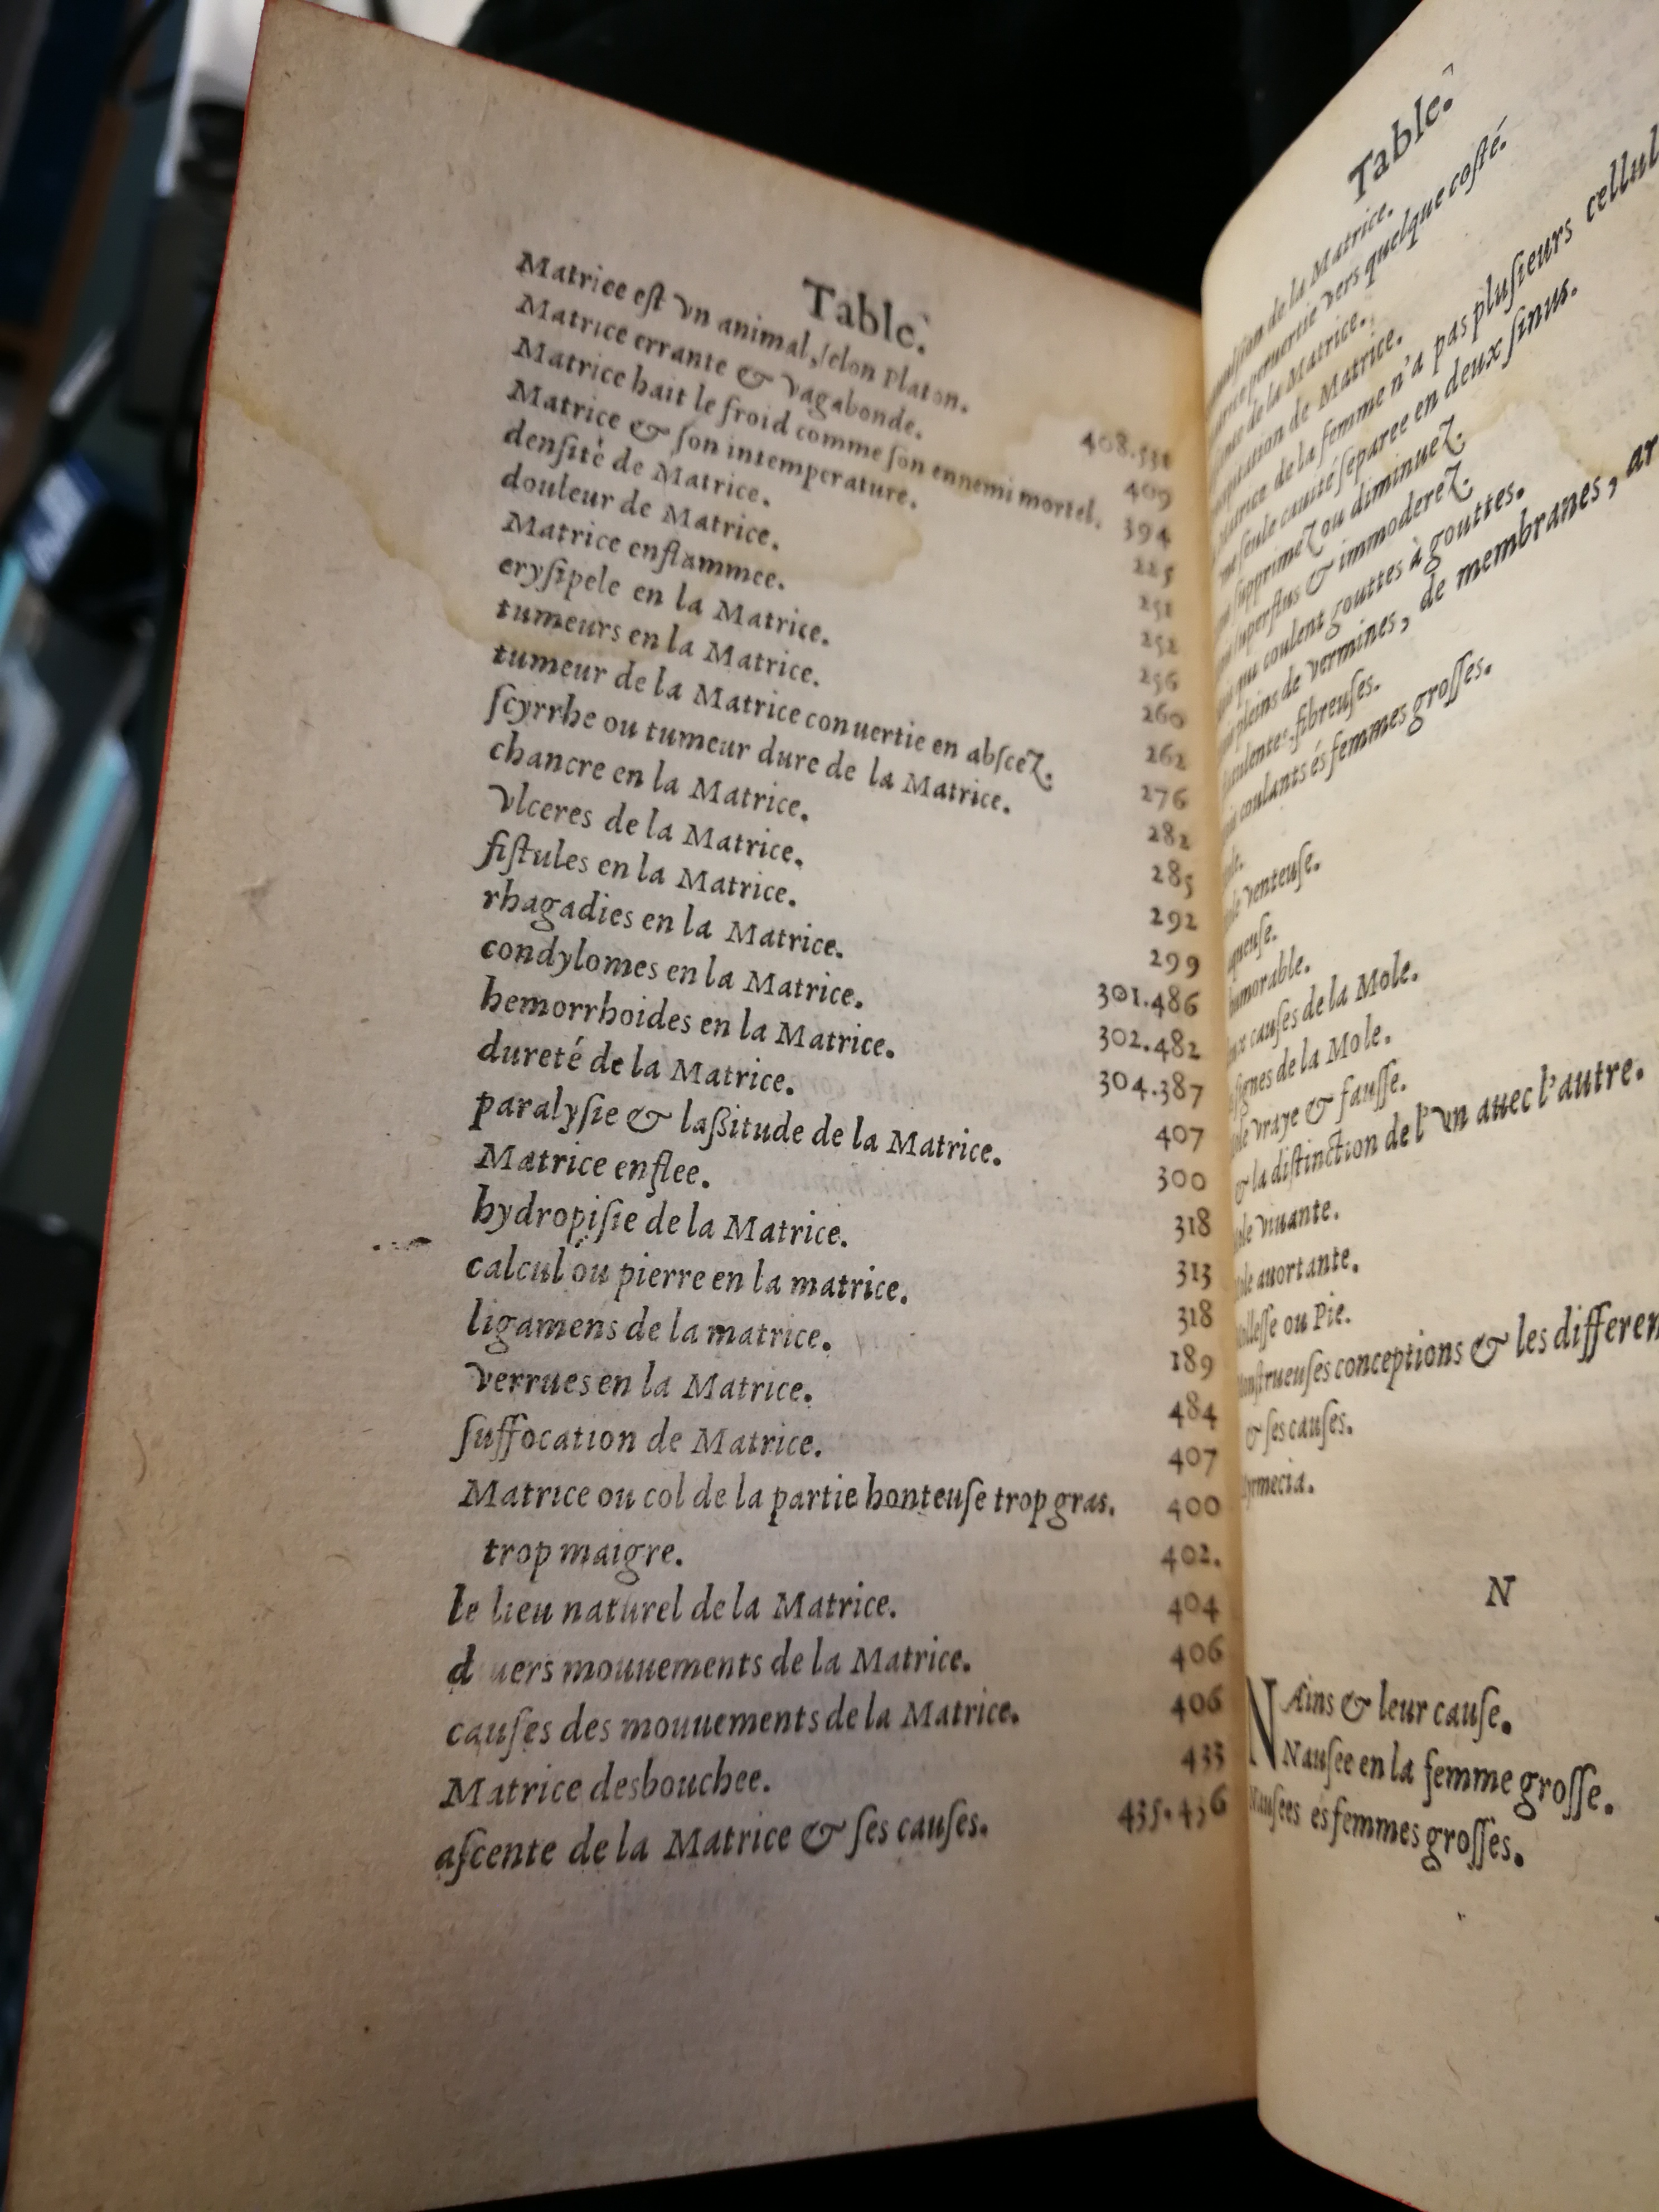 Table.
Matrice est vn animal, selon Platon. 408.531
Matrice errante & vagabonde. 409
Matrice hait le froid comme son ennemi mortel. 394
Matrice & son intemperature. 225
densité de Matrice. 251
douleur de Matrice. 252
Matrice enflammee. 256
erysipele en la Matrice. 260
tumeurs en la Matrice. 262
tumeur de la Matrice conuertie en abscez. 276
scyrrhe ou tumeur dure de la Matrice. 282
chancre en la Matrice. 285
vlceres de la Matrice. 292
fistules en la Matrice. 299
rhagadies en la Matrice. 301.486
condylomes en la Matrice. 302.482
hemorrhoides en la Matrice. 304.387
dureté de la Matrice. 407
paralysie & lassitude de la Matrice. 300
Matrice enflee. 318
hydropisie de la Matrice. 313
calcul ou pierre en la matrice. 318
ligamens de la matrice. 189
verrues en la Matrice. 484
suffocation de Matrice. 407
Matrice ou col de la partie honteuse trop gras. 400
trop maigre. 402.
le lieu naturel de la Matrice. 404
d uers mouuements de la Matrice. 406
causes des mouuements de la Matrice. 406
Matrice desbouchee. 433
ascente de la Matrice & ses causes. 435.436
Table.
de la Matrice.
peruertie vers quelque costé.
de la Matrice.
de Matrice.
de la femme n'a pas plusieurs
seule cauité separee en deux sinus.
supprimez ou diminuez.
superflus & immoderez.
qui coulent gouttes à gouttes.
pleins de vermines, de membranes,
fibreuses.
coulants és femmes grosses.
venteuse.
causes de la Mole.
signes de la Mole.
vraye & fausse.
& la distinction de l'vn auec l'autre.
viuante.
auortante.
ou Pie.
conceptions & les
& ses causes.
N
NAins & leur cause.
Nausee en la femme grosse.
Nausees es femmes grosses.